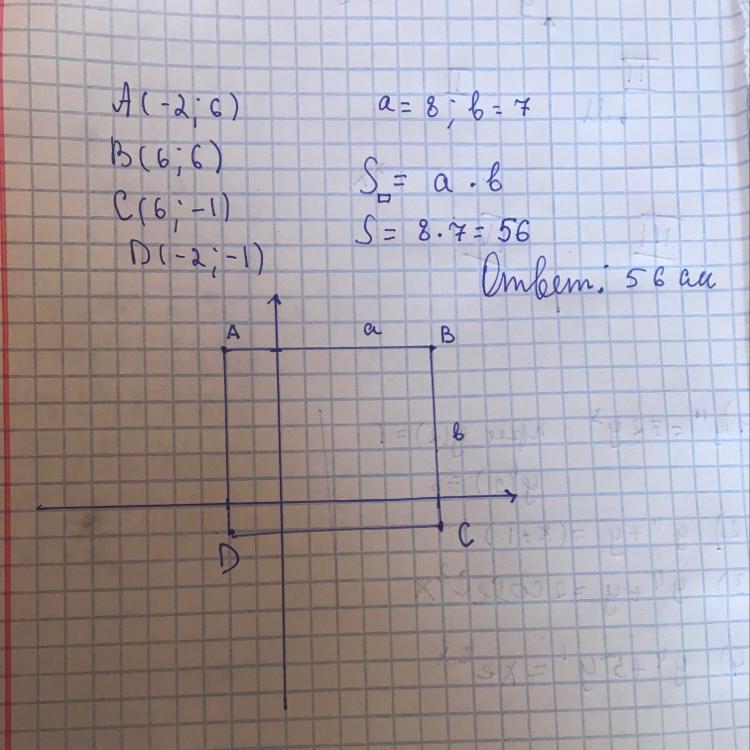 A(-2; 6)
B(6; 6)
C(6; -1)
D(-2; -1)
a = 8; b = 7
S▭ = a · b
S = 8 · 7 = 56
Ответ: 56 см
A
a
B
b
D
C